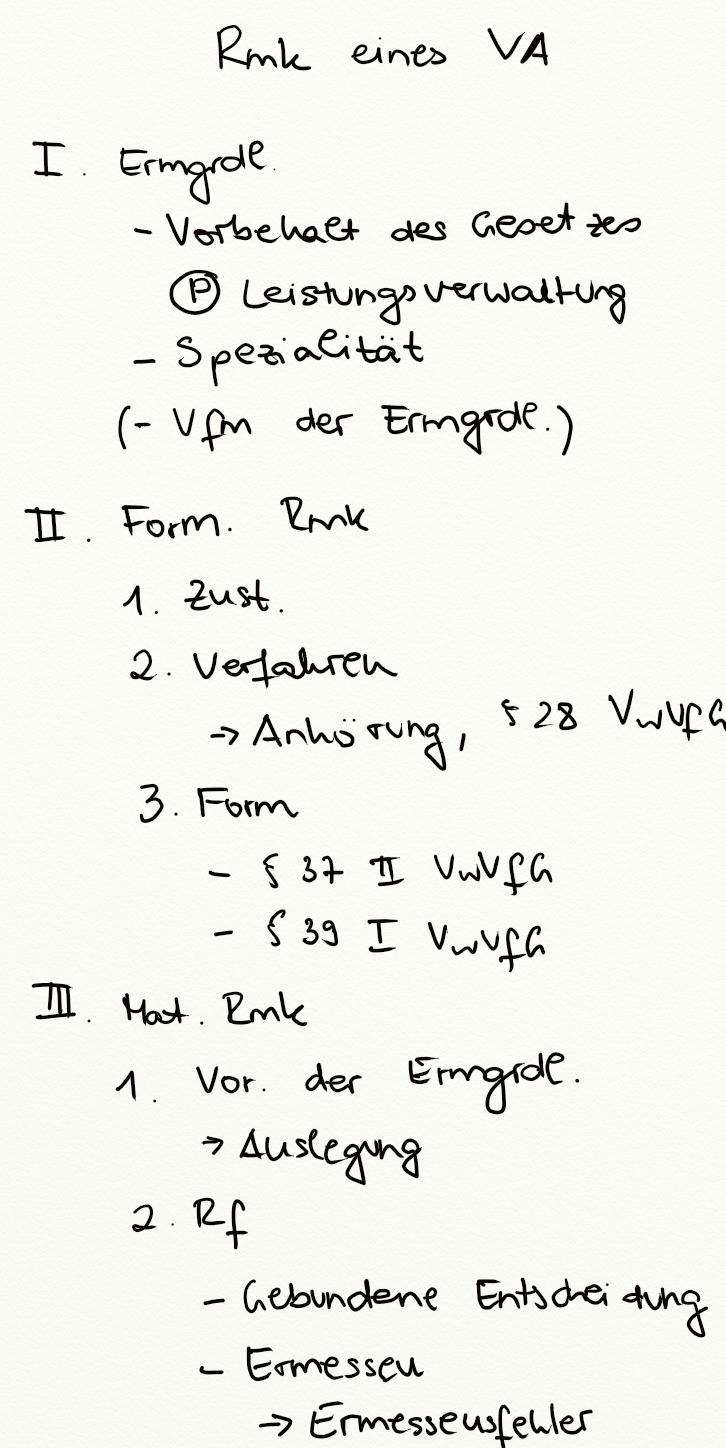 Rmk eines VA
I. Ermgrdl.
- Vorbehalt des Gesetzes
Ⓟ Leistungsverwaltung
- Spezialität
(- Vfm der Ermgrdl.)
II. Form. Rmk
1. Zust.
2. Verfahren
→ Anhörung, § 28 VwVfG
3. Form
- § 37 II VwVfG
- § 39 I VwVfG
III. Mat. Rmk
1. Vor. der Ermgrdl.
→ Auslegung
2. Rf
- Gebundene Entscheidung
- Ermessen
→ Ermessensfehler